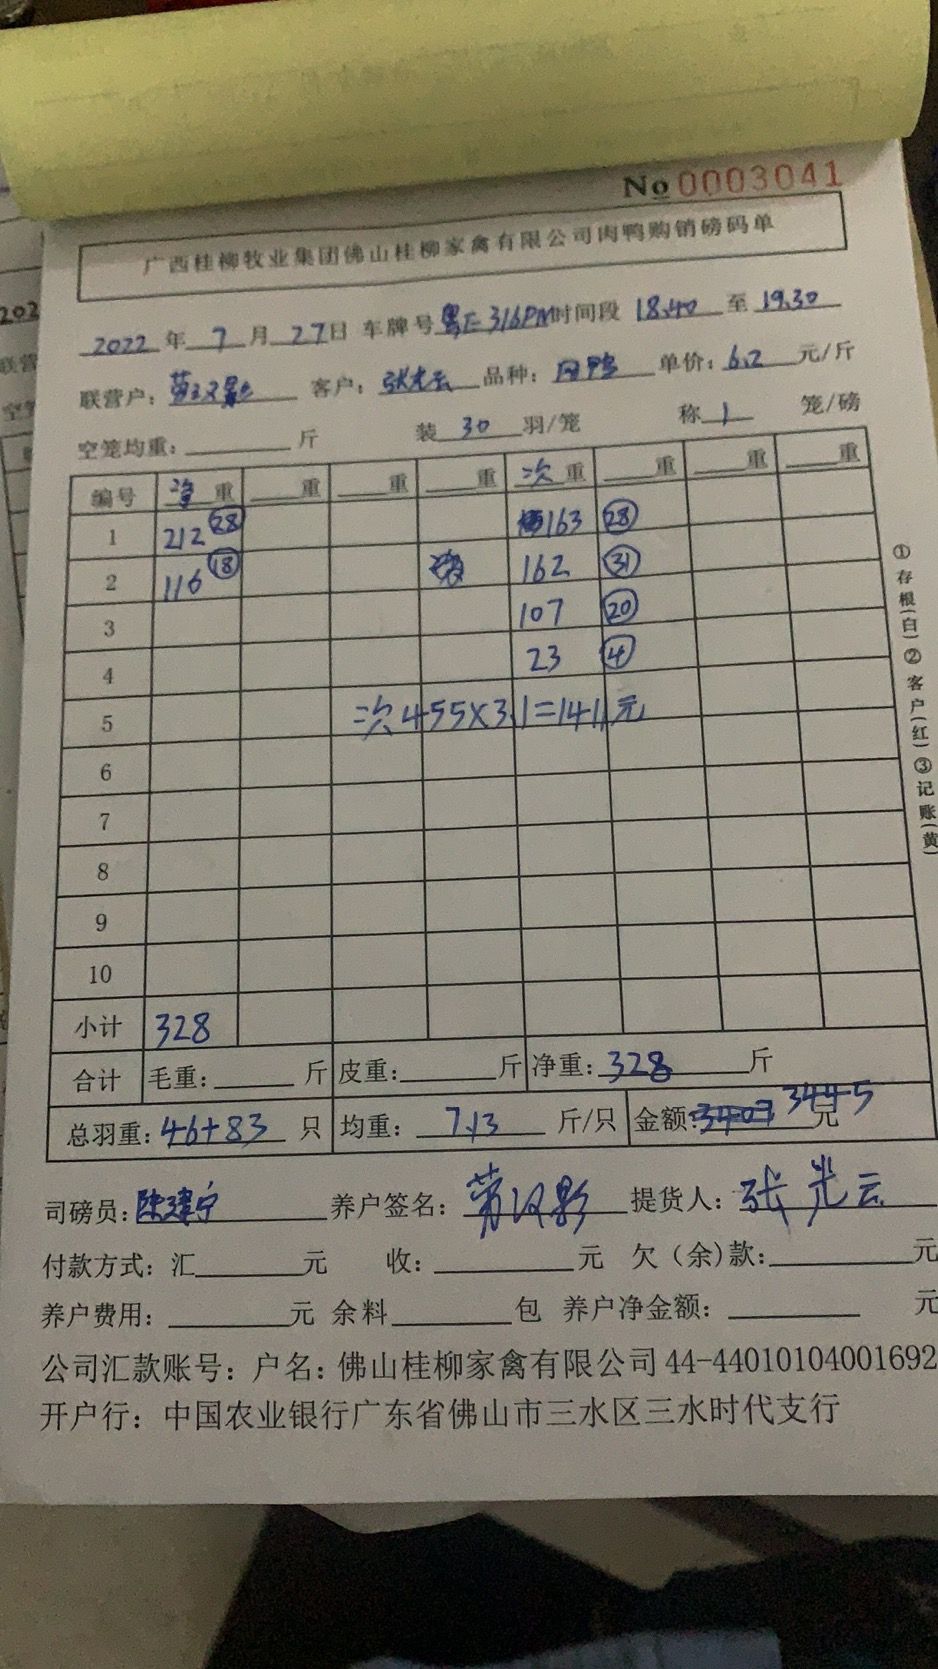 No 0003041
广西桂柳牧业集团佛山桂柳家禽有限公司肉鸭购销磅码单
2022 年 7 月 27 日 车牌号 粤E316PM 时间段 18.40 至 19.30
联营户: 劳汉影 客户: 张光云 品种: 肉鸭 单价: 6.2 元/斤
空笼均重: 斤 装 30 羽/笼 称 1 笼/磅
编号 净重 重 重 重 次重 重 重 重
1 212 28 163 28
2 116 18 162 31
3 107 20
4 23 4
5 次455X3.1=1411元
6
7
8
9
10
小计 328
合计 毛重: 斤 皮重: 斤 净重: 328 斤
总羽重: 46+83 只 均重: 7.13 斤/只 金额: 3407 3445 元
司磅员: 陈建宁 养户签名: 劳汉影 提货人: 张光云
付款方式: 汇 元 收: 元 欠(余)款: 元
养户费用: 元 余料 包 养户净金额: 元
公司汇款账号: 户名: 佛山桂柳家禽有限公司 44-44010104001692
开户行: 中国农业银行广东省佛山市三水区三水时代支行
①存根(白)②客户(红)③记账(黄)
202
联营
空笼